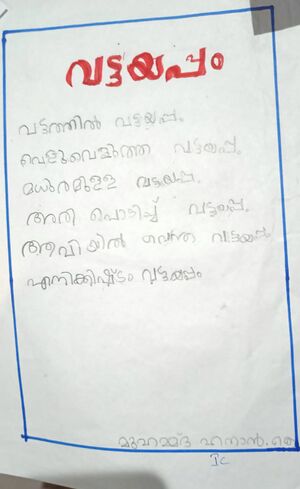 വട്ടയപ്പം
വട്ടത്തിൽ വട്ടയപ്പം
വെളുവെളുത്ത വട്ടയപ്പം
മധുരമുള്ള വട്ടയപ്പം
അരി പൊടിച്ച് വട്ടയപ്പം
ആവിയിൽ വെന്ത വട്ടയപ്പം
എനിക്കിഷ്ടം വട്ടയപ്പം
മുഹമ്മദ് ഹനാൻ. കെ
I C